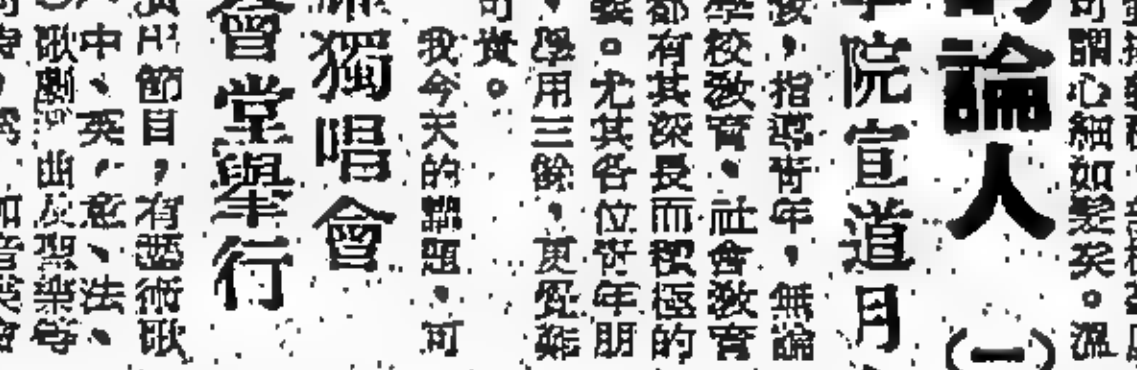 可謂心細如髮矣。溫
論人（一）
院宣道月
後，指導青年，無論
學校教育、社會教育
都有其深長而積極的
義。尤其各位青年朋
學用三餘，更覺難
可貴。
我今天的講題，可
獨唱會
會堂舉行
節目，有藝術歌
中、英、意、法、
歌劇 曲及聖樂等